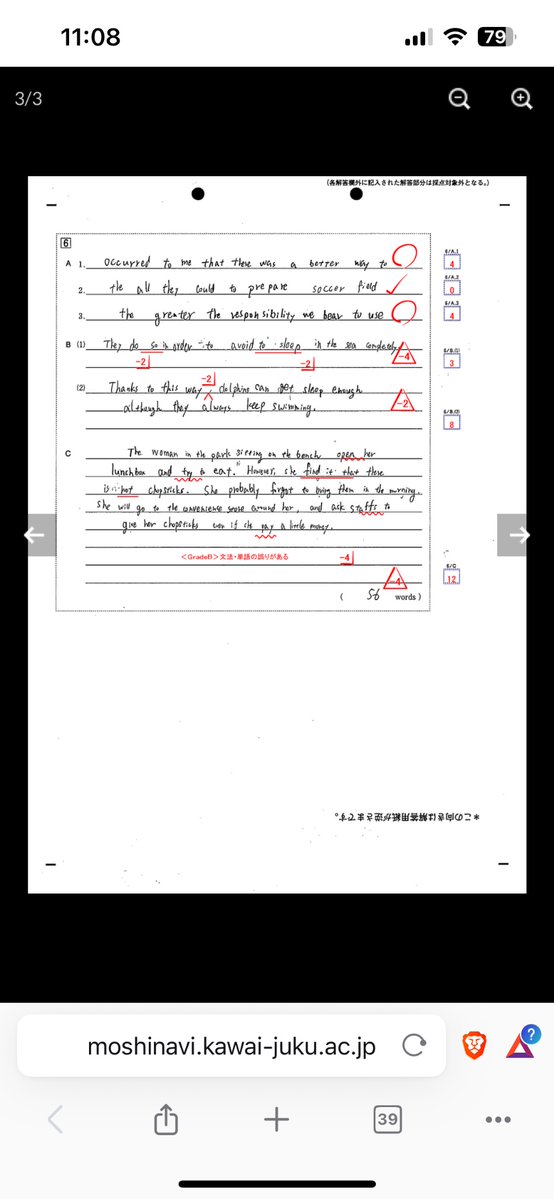 11:08
79
3/3
(各解答欄外に記入された解答部分は採点対象外となる。)
6
A 1. occurred to me that there was a better way to
6/A.1
4
2. the all they could to prepare soccer field
6/A.2
0
3. the greater the responsibility we bear to use
6/A.3
4
B (1) They do so in order to avoid to sleep in the sea completely
-4
-2
-2
6/B.(1)
3
(2) Thanks to this way, dolphins can get sleep enough
-2
although they always keep swimming.
-2
6/B.(2)
8
C The woman in the park sitting on the bench open her
lunchbox and try to eat. However, she find it that there
is not chopsticks. She probably forgot to bring them in the morning.
She will go to the convenience store around her, and ask staffs to
give her chopsticks even if she pay a little money.
<GradeB>文法・単語の誤りがある
-4
-4
6/C
12
( 56 words )
*この向きは解答用紙が逆さまです。
moshinavi.kawai-juku.ac.jp
?
39